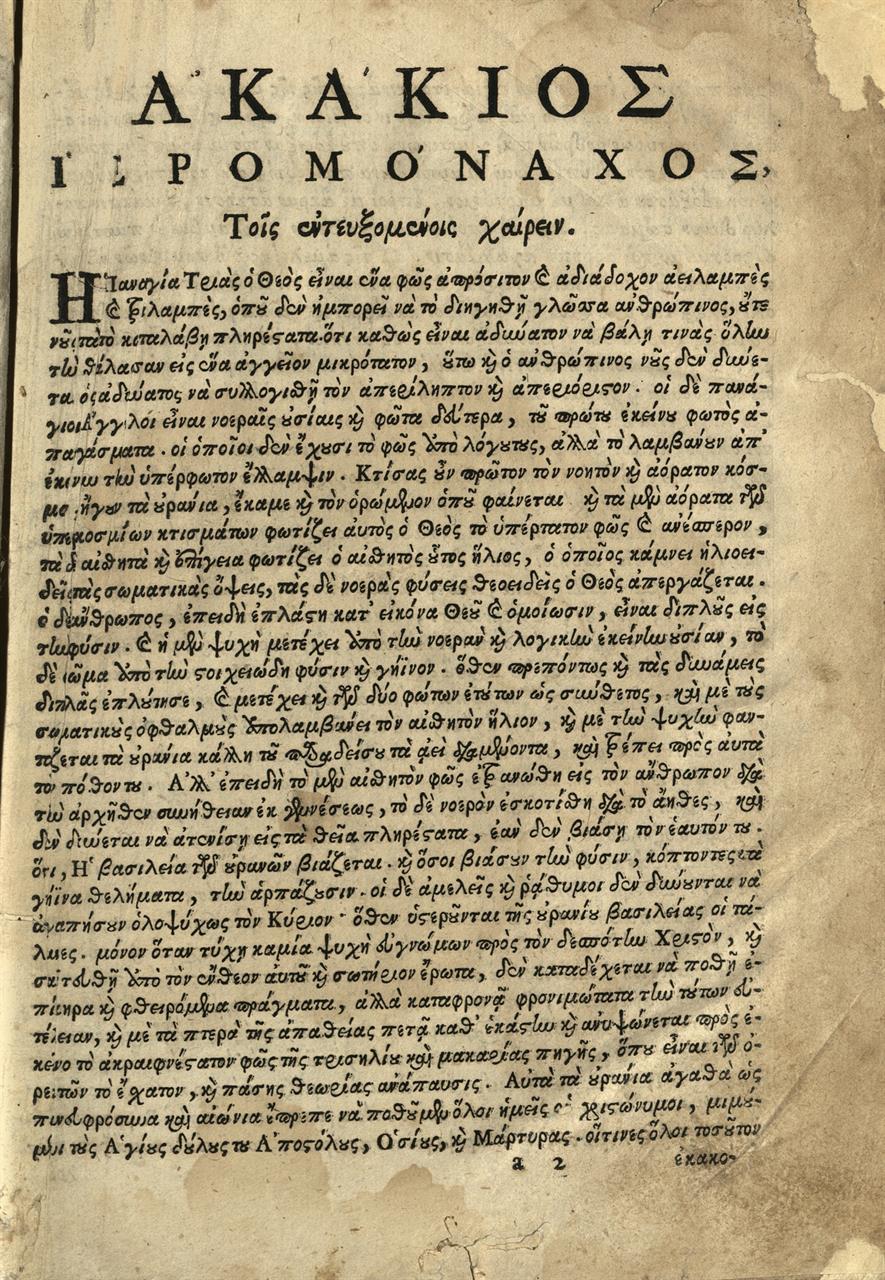 ἈΚΆΚΙΟΣ
ἹΕΡΟΜΌΝΑΧΟΣ,
Τοῖς ἐντευξομένοις χαίρειν.
Ἡ Παναγία Τριὰς ὁ Θεὸς εἶναι ἕνα φῶς ἀπρόσιτον καὶ ἀδιάδοχον ἀειλαμπὲς
καὶ ἐξιλαμπὲς, ὁποῦ δὲν ἠμπορεῖ νὰ τὸ διηγηθῇ γλῶσσα ἀνθρώπινος, οὔτε
νοῦς νὰ τὸ καταλάβῃ πληρέστατα· ὅτι καθὼς εἶναι ἀδύνατον νὰ βάλῃ τινὰς ὅλην
τὴν θάλασσαν εἰς ἕνα ἀγγεῖον μικρότατον, οὕτω καὶ ὁ ἀνθρώπινος νοῦς δὲν δύνε-
ται ὡς ἀδύνατος νὰ συλλογισθῇ τὸν ἀπερίληπτον καὶ ἀπεριόριστον. οἱ δὲ πανά-
γιοι Ἄγγελοι εἶναι νοεραῖς οὐσίαις καὶ φῶτα δεύτερα, τοῦ πρώτου ἐκείνου φωτὸς ἀ-
παυγάσματα. οἱ ὁποῖοι δὲν ἔχουσι τὸ φῶς ἀπὸ λόγουτους, ἀλλὰ τὸ λαμβάνουν ἀπ'
ἐκείνην τὴν ὑπέρφωτον ἔλλαμψιν. Κτίσας οὖν πρῶτον τὸν νοητὸν καὶ ἀόρατον κόσ-
μον, ἤγουν τὰ οὐράνια, ἔκαμε καὶ τὸν ὁρώμενον ὁποῦ φαίνεται καὶ τὰ μὲν ἀόρατα τῶν
ὑπερκοσμίων κτισμάτων φωτίζει αὐτὸς ὁ Θεὸς τὸ ὑπέρτατον φῶς καὶ ἀνέσπερον,
τὰ δ' αἰσθητὰ καὶ ἐπίγεια φωτίζει ὁ αἰσθητὸς οὗτος ἥλιος, ὁ ὁποῖος κάμνει ἡλιοει-
δεῖς τὰς σωματικὰς ὄψεις, τὰς δὲ νοερὰς φύσεις θεοειδεῖς ὁ Θεὸς ἀπεργάζεται.
ὁ δ' ἄνθρωπος, ἐπειδὴ ἐπλάστη κατ' εἰκόνα Θεοῦ καὶ ὁμοίωσιν, εἶναι διπλοῦς εἰς
τὴν φύσιν. καὶ ἡ μὲν ψυχὴ μετέχει ἀπὸ τὴν νοερὰν καὶ λογικὴν ἐκείνην οὐσίαν, τὸ
δὲ σῶμα ἀπὸ τὴν στοιχειώδη φύσιν καὶ γήϊνον. ὅθεν πρεπόντως καὶ τὰς δυνάμεις
διπλᾶς ἐπλούτησε, καὶ μετέχει καὶ τῶν δύο φώτων ἐτούτων ὡς σύνθετος, καὶ μὲ τοὺς
σωματικοὺς ὀφθαλμοὺς ἀπολαμβάνει τὸν αἰσθητὸν ἥλιον, καὶ μὲ τὴν ψυχὴν φαν-
τάζεται τὰ οὐράνια κάλλη τοῦ παραδείσου τὰ ἀεὶ διαμένοντα, καὶ τρέπει πρὸς αὐτὰ
τὸν πόθον του. Ἀλλ' ἐπειδὴ τὸ μὲν αἰσθητὸν φῶς ἐφανώθη εἰς τὸν ἄνθρωπον διὰ
τὴν ἀρχῆθεν συνήθειαν ἐκ γεννέσεως, τὸ δὲ νοερὸν ἐσκοτίσθη διὰ τὸ ἄηθες, καὶ
δὲν δύνεται νὰ ἀτενίσῃ εἰς τὰ θεῖα πληρέστατα, ἐὰν δὲν βιάσῃ τὸν ἑαυτόν του.
ὅτι, Ἡ βασιλεία τῶν οὐρανῶν βιάζεται. καὶ ὅσοι βιάσουν τὴν φύσιν, κόπτοντες τὰ
γήϊνα θελήματα, τὴν ἁρπάζουσιν. οἱ δὲ ἀμελεῖς καὶ ῥάθυμοι δὲν δύνουνται νὰ
ἀγαπήσουν ὁλοψύχως τὸν Κύριον· ὅθεν ὑστεροῦνται τῆς οὐρανίου βασιλείας οἱ τά-
λανες. μόνον ὅταν τύχῃ καμία ψυχὴ εὐγνώμων πρὸς τὸν δεσπότην Χριστὸν, καὶ
σκλαβωθῇ ἀπὸ τὸν ἔνθεον αὐτοῦ καὶ σωτήριον ἔρωτα, δὲν καταδέχεται νὰ ποθῇ ἐ-
πίκηρα καὶ φθειρόμενα πράγματα, ἀλλὰ καταφρονᾷ φρονιμώτατα τὴν τούτων εὐ-
τέλειαν, καὶ μὲ τὰ πτερὰ τῆς ἀπαθείας πετᾷ καθ' ἑκάστην καὶ ἀνυψώνεται πρὸς ἐ-
κεῖνο τὸ ἀκραιφνέστατον φῶς τῆς τρισηλίου καὶ μακαρίας πηγῆς, ὅπου εἶναι τῶν ὀ-
ρεκτῶν τὸ ἔσχατον, καὶ πάσης θεωρίας ἀνάπαυσις. Αὐτὰ τὰ οὐράνια ἀγαθὰ ὡς
πανευφρόσυνα καὶ αἰώνια ἔπρεπε νὰ ποθοῦμεν ὅλοι ἡμεῖς οἱ χριστώνυμοι, μιμού-
μενοι τοὺς Ἁγίους δούλους του Ἀποστόλους, Ὁσίους, καὶ Μάρτυρας. οἵτινες ὅλοι τοσοῦτον
a 2 ἐκακο-